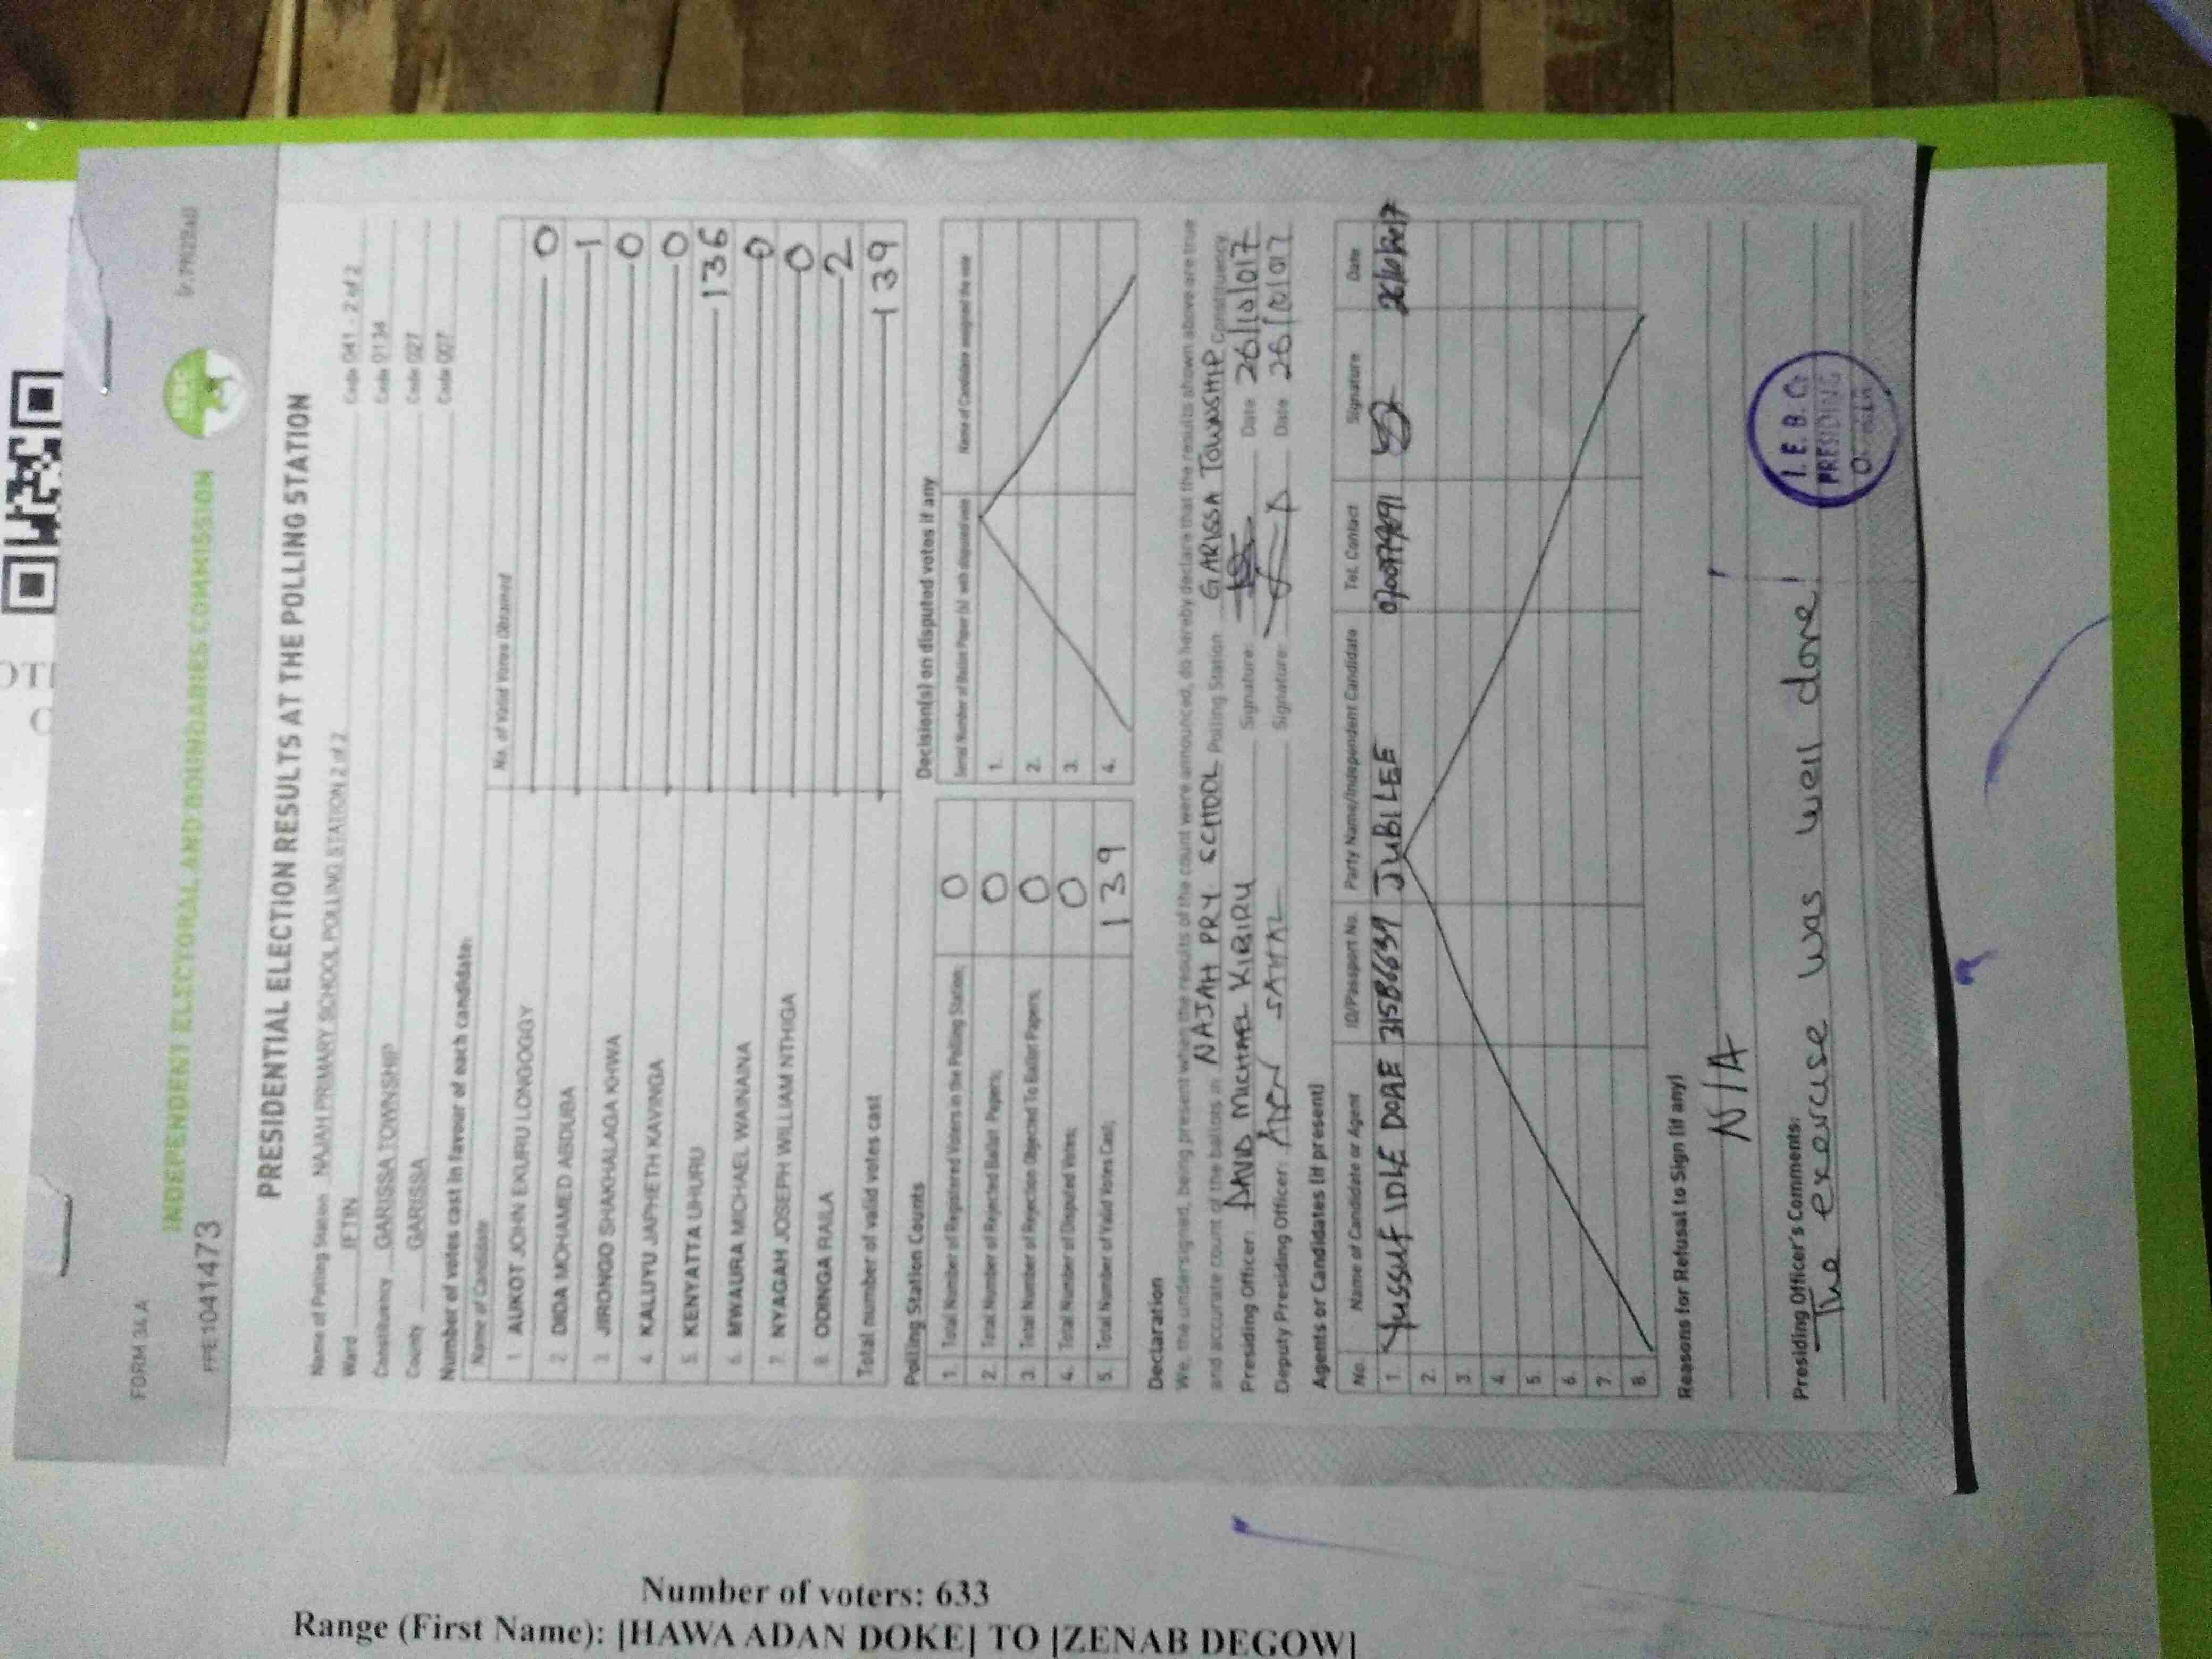 FORM 34A
PPE10414173
INDEPENDENT ELECTORAL AND BOUNDARIES COMMISSION
PRESIDENTIAL ELECTION RESULTS AT THE POLLING STATION
Name of Polling Station NAJAH PRIMARY SCHOOL POLLING STATION 2 of 2 Code 041 - 2 of 2
Ward IFTIN Code 0134
Constituency GARISSA TOWNSHIP Code 027
County GARISSA Code 007
Number of votes cast in favour of each candidate:
Name of Candidate No. of Valid Votes Obtained
1. AUKOT JOHN EKURU LONGOGGY 0
2. DIDA MOHAMED ABDUBA 1
3. JIRONGO SHAKHALAGA KHWA 0
4. KALUYU JAPHETH KAVINGA 0
5. KENYATTA UHURU 136
6. MWAURA MICHAEL WAINAINA 0
7. NYAGAH JOSEPH WILLIAM NTHIGA 0
8. ODINGA RAILA 2
Total number of valid votes cast 139
Polling Station Counts
1. Total Number of Registered Voters in the Polling Station; 0
2. Total Number of Rejected Ballot Papers; 0
3. Total Number of Rejection Objected To Ballot Papers; 0
4. Total Number of Disputed Votes; 0
5. Total Number of Valid Votes Cast; 139
Decision(s) on disputed votes if any
Serial Number of Ballot Paper (s) with disputed vote Name of Candidate assigned the vote
1.
2.
3.
4.
Declaration
We, the undersigned, being present when the results of the count were announced, do hereby declare that the results shown above are true
and accurate count of the ballots in NAJAH PRY SCHOOL Polling Station GARISSA TOWNSHIP Constituency
Presiding Officer: DAVID MICHAEL KIBIRU Signature: Date 26/10/017
Deputy Presiding Officer: SAHAL Signature: Date 26/10/017
Agents or Candidates (if present)
No. Name of Candidate or Agent ID/Passport No. Party Name/Independent Candidate Tel. Contact Signature Date
1. Yussuf IDLE DORE JUBILEE 26/10/2017
2.
3.
4.
5.
6.
7.
8.
Reasons for Refusal to Sign (if any)
N/A
Presiding Officer's Comments:
The exercise was well done!
I.E.B.C.
PRESIDING
Number of voters: 633
Range (First Name): [HAWA ADAN DOKE] TO [ZENAB DEGOW]